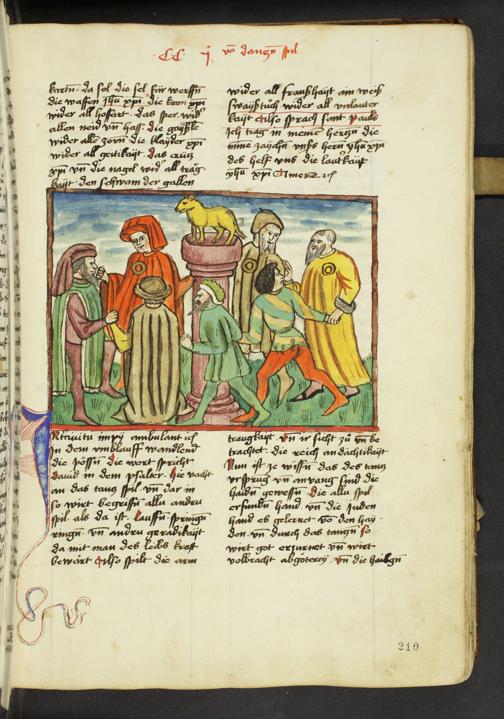 CC ij vō danczn spil
kertn. da sol die sel für werffn
die waffen ihu xpi. die kron xpi
wider all hoffart. das sper. wid
allen neid vn̄ hass. die geyschl
wider alle zorn. die klayder xpi
wider all geitikayt. das creütz
xpi vn̄ die nagel wid all träg
kayt. den schwam der gallen
wider all fraushayt am weis
swaistuch wider all vnlauter
kayt. Also sprach sant pauls
Ich trag in meinē herczn die
mine zaychn vnßs hern ihu xpi
des helf vns die lautkayt
yhu xpi Amen
circuitu impij ambulant ich
In dem vmblauff wandlend
die pösen die wort spricht
dauid in dem psalter. Hie vacht
an das tancz spil vn̄ dar in
so wirt begriffn allu andru
spil als da ist lauffn springn
ringn vn̄ andru geradikayt
da mit man des leibs kraft
bewärt Also spilt die arm
traugkayt. vn̄ er sicht zu vn̄ be
trachtet die reich andächtikayt
Nun ist ze wissn das des tancz
vrsprug vn̄ anvang sind die
haidn gewesn die allu spil
erfundn hand. vn̄ die Juden
hand es gelernet vō den hay
den. vn̄ durch das tanczn so
wirt got erzurnet vn̄ wirt
volbracht abgöterey. vn̄ die hailign
210